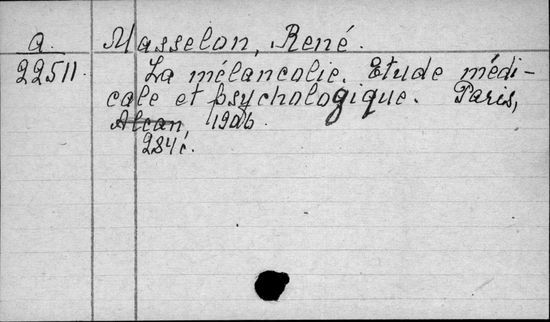 a. Masselon, René.
22511. La mélancolie. Etude médi-
cale et psychologique. Paris,
Alcan, 1906.
284c.